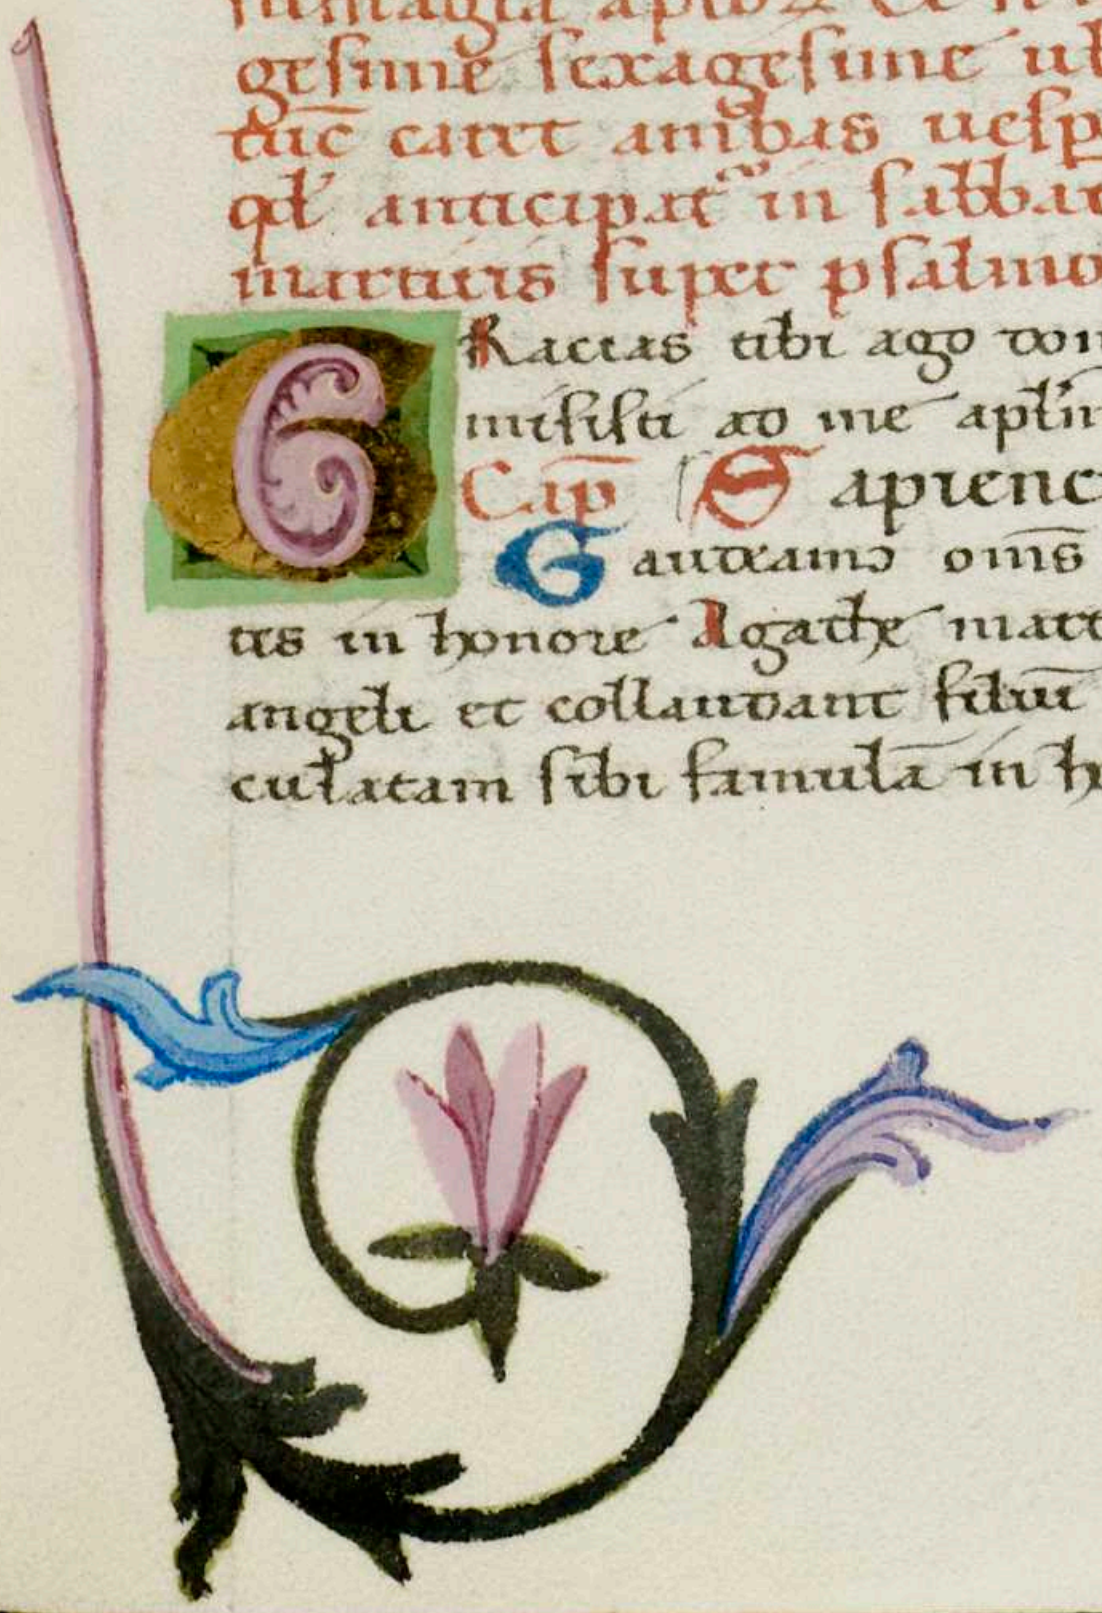 gesime sexagesime ul
tūc caret
qd' anticipat᷑ in sabbat
martiris super psalmo
GRacias tibi ago dom
misisti ad me apl'm
Cap̄ Sapienc
Gaudeamꝰ om̄s
tis in honore Agathe mart
angeli et collaudant filiū
culatam sibi famulā in h